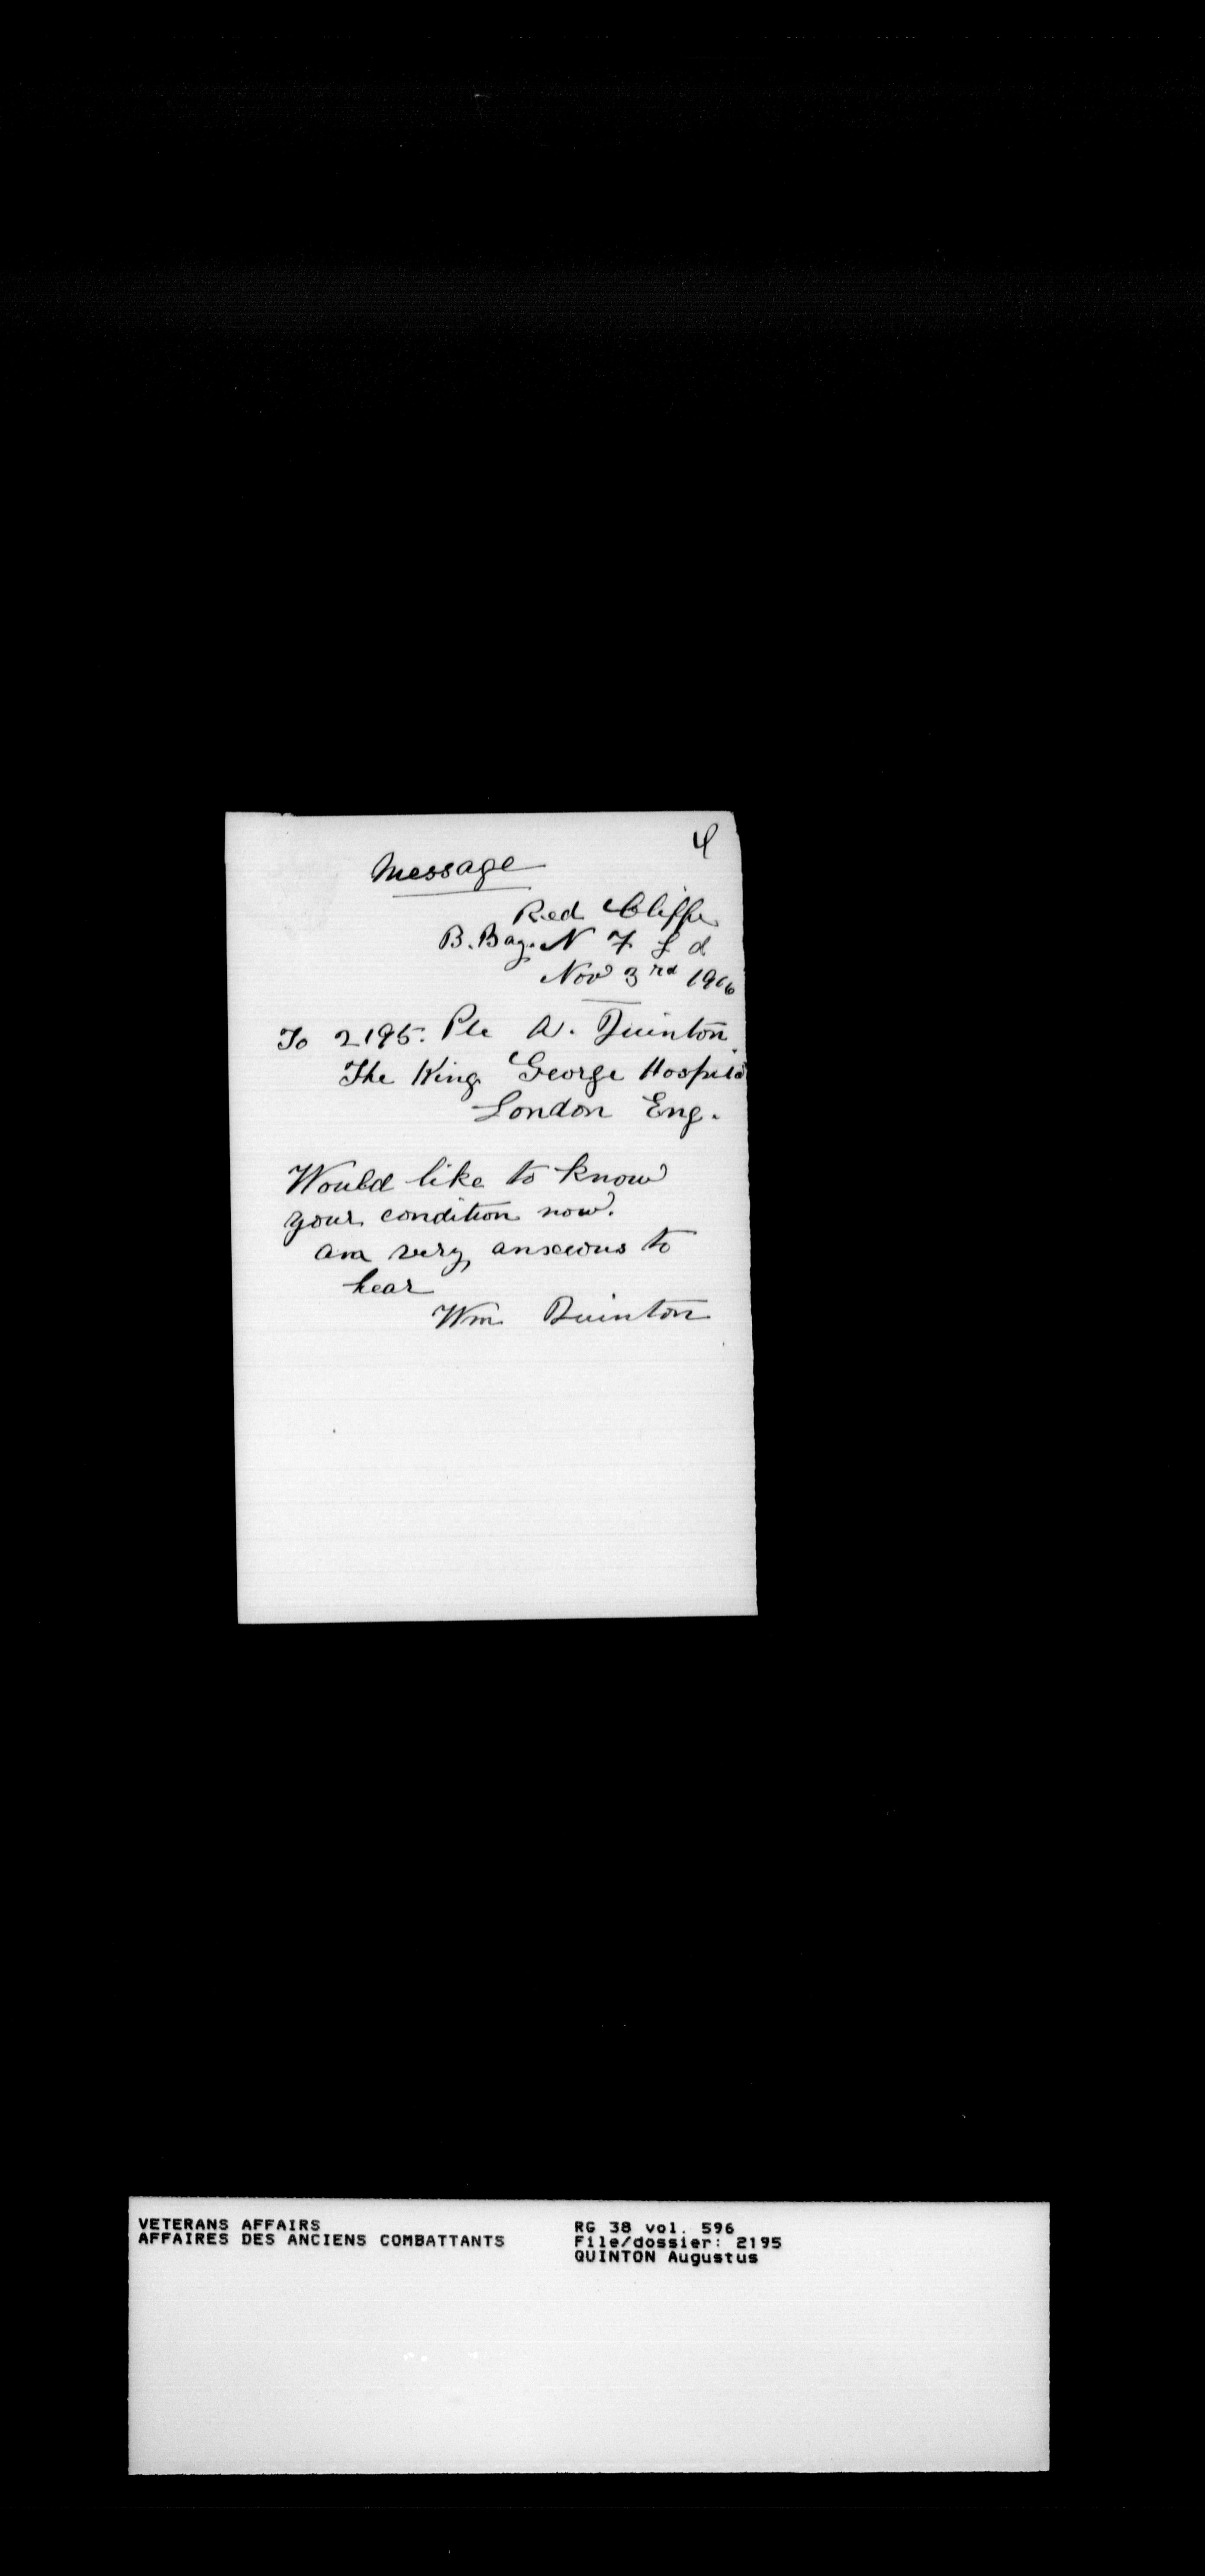 4
Message
Red Cliffe
B. Bay. N F L d
Nov 3rd 1916
To 2195. Pte A. Quinton
The King George Hospital
London Eng.
Would like to know
your condition now.
am very anxious to
hear
Wm Quinton
VETERANS AFFAIRS
AFFAIRES DES ANCIENS COMBATTANTS
RG 38 vol. 596
File/dossier: 2195
QUINTON Augustus